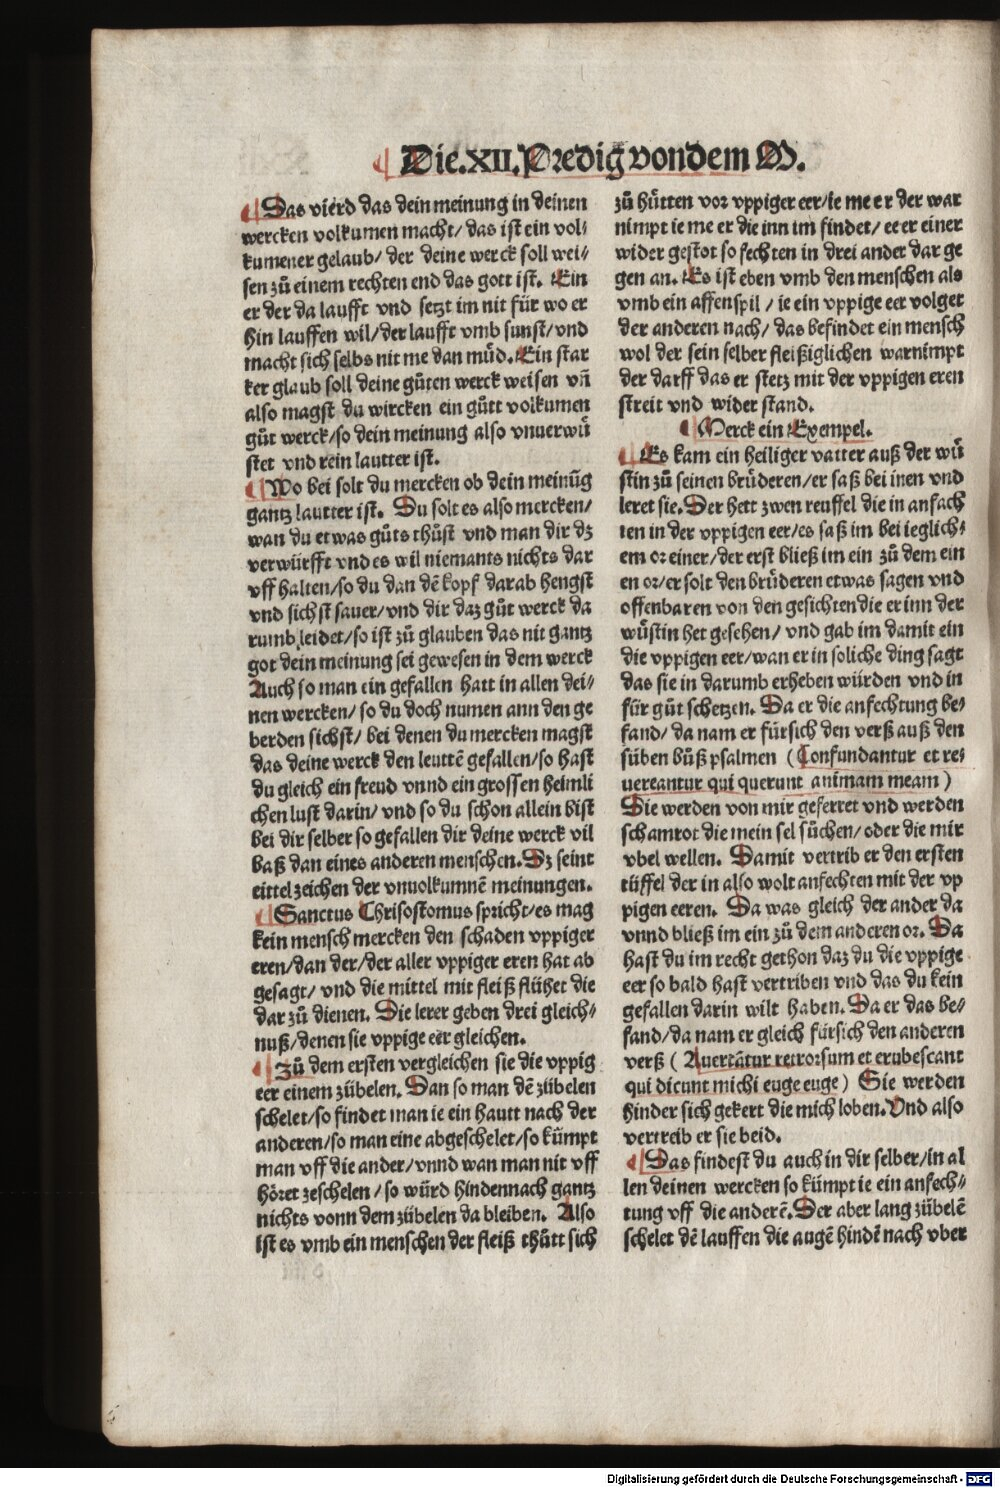 Die.XII.Predig von dem M.
Das vierd das dein meinung in deinen
wercken volkumen macht/ das ist ein vol⸗
kumener gelaub/ der deine werck soll wei⸗
sen zů einem rechten end das gott ist. Ein
er der da laufft vnd setzt im nit für wo er
hin lauffen wil/der laufft vmb sunst/vnd
macht sich selbs nit me dan můd. Ein star
ker glaub soll deine gůten werck weisen vñ
also magst du wircken ein gůtt volkumen
gůt werck/so dein meinung also vnuerwů
stet vnd rein lautter ist.
Wo bei solt du mercken ob dein meinũg
gantz lautter ist. Du solt es also mercken/
wan du etwas gůts thůst vnd man dir dz
verwürfft vnd es wil niemants nichts dar
vff halten/so du dan dẽ kopf darab hengst
vnd sichst sauer/vnd dir daz gůt werck da
rumb leidet/so ist zů glauben das nit gantz
got dein meinung sei gewesen in dem werck
Auch so man ein gefallen hatt in allen dei⸗
nen wercken/ so du doch numen ann den ge
berden sichst/ bei denen du mercken magst
das deine werck den leuttẽ gefallen/so hast
du gleich ein freud vnnd ein grossen heimli
chen lust darin/ vnd so du schon allein bist
bei dir selber so gefallen dir deine werck vil
baß dan eines anderen menschen. Dz seint
eittel zeichen der vnuolkumnẽ meinungen.
Sanctus Chrisostomus spricht/es mag
kein mensch mercken den schaden vppiger
eren/dan der/der aller vppiger eren hat ab
gesagt/ vnd die mittel mit fleiß flühet die
dar zů dienen. Die lerer geben drei gleich⸗
nuß/denen sie vppige eer gleichen.
Zů dem ersten vergleichen sie die vppig
eer einem zübelen. Dan so man dẽ zübelen
schelet/so findet man ie ein hautt nach der
anderen/so man eine abgeschelet/so kümpt
man vff die ander/vnnd wan man nit vff
höret zeschelen/so würd hindennach gantz
nichts vonn dem zübelen da bleiben. Also
Ist es vmb ein menschen der fleiß thůtt sich
zů hütten vor vppiger eer/ie me er der war
nimpt ie me er die inn im findet/ ee er einer
wider gestot so fechten in drei ander dar ge
gen an. Es ist eben vmb den menschen als
vmb ein affenspil/ie ein vppige eer volget
der anderen nach/ das befindet ein mensch
wol der sein selber fleißiglichen warnimpt
der darff das er stetz mit der vppigen eren
streit vnd wider stand.
Merck ein Exempel.
Es kam ein heiliger vatter auß der wů
stin zů seinen brüderen/er saß bei inen vnd
leret sie. Der hett zwen teuffel die in anfach
ten in der vppigen eer/es saß im bei ieglich⸗
em or einer/der erst bließ im ein zů dem ein
en or/er solt den brüderen etwas sagen vnd
offenbaren von den gesichten die er inn der
wüstin het gesehen/ vnd gab im damit ein
die vppigen eer/wan er in soliche ding sagt
das sie in darumb erheben würden vnd in
für gůt schetzen. Da er die anfechtung be⸗
fand/ da nam er fürsich den verß auß den
süben bůß psalmen (Confundantur et re⸗
uereantur qui querunt animam meam)
Die werden von mir geferret vnd werden
schamrot die mein sel sůchen/oder die mir
vbel wellen. Damit vertrib er den ersten
tüffel der in also wolt anfechten mit der vp
pigen eeren. Da was gleich der ander da
vnnd bließ im ein zů dem anderen or. Da
hast du im recht gethon daz du die vppige
eer so bald hast vertriben vnd das du kein
gefallen darin wilt haben. Da er das be⸗
fand/da nam er gleich fürsich den anderen
verß (Auertãtur retrorsum et erubescant
qui dicunt michi euge euge) Sie werden
hinder sich gekert die mich loben. Vnd also
vertreib er sie beid.
Das findest du auch in dir selber/in al
len deinen wercken so kümpt ie ein anfech⸗
tung vff die anderẽ. Der aber lang zübelẽ
schelet dẽ lauffen die augẽ hindẽ nach vber
Digitalisierung gefördert durch die Deutsche Forschungsgemeinschaft - DFG